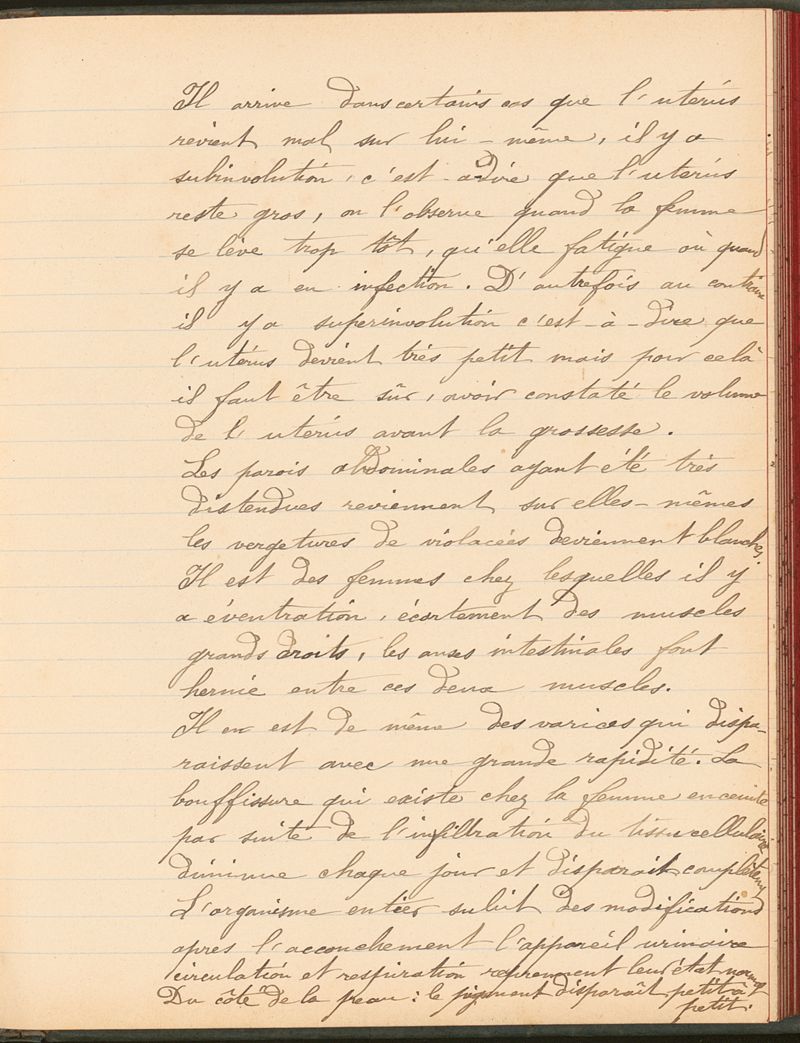 Il arrive dans certains cas que l'utérus
revient mal sur lui-même, il y a
subinvolution, c'est-à-dire que l'utérus
reste gros, on l'observe quand la femme
se lève trop tôt, qu'elle fatigue où quand
il y a eu infection. D'autrefois au contraire
il y a superinvolution c'est-à-dire que
l'utérus devient très petit mais pour celà
il faut être sûr, avoir constaté le volume
de l'utérus avant la grossesse.
Les parois abdominales ayant été très
distendues reviennent sur elles-mêmes
les vergetures de violacées deviennent blanches.
Il est des femmes chez lesquelles il y
a éventration, écartement des muscles
grands droits, les anses intestinales font
hernie entre ces deux muscles.
Il en est de même des varices qui dispa-
raissent avec une grande rapidité. La
bouffissure qui existe chez la femme enceinte
par suite de l'infiltration du tissu cellulaire
diminue chaque jour et disparait complètement
L'organisme entier subit des modifications
apres l'accouchement l'appareil urinaire
circulation et respiration reprennent leur état normal
Du côté de la peau: le pigment disparaît petit à
petit.